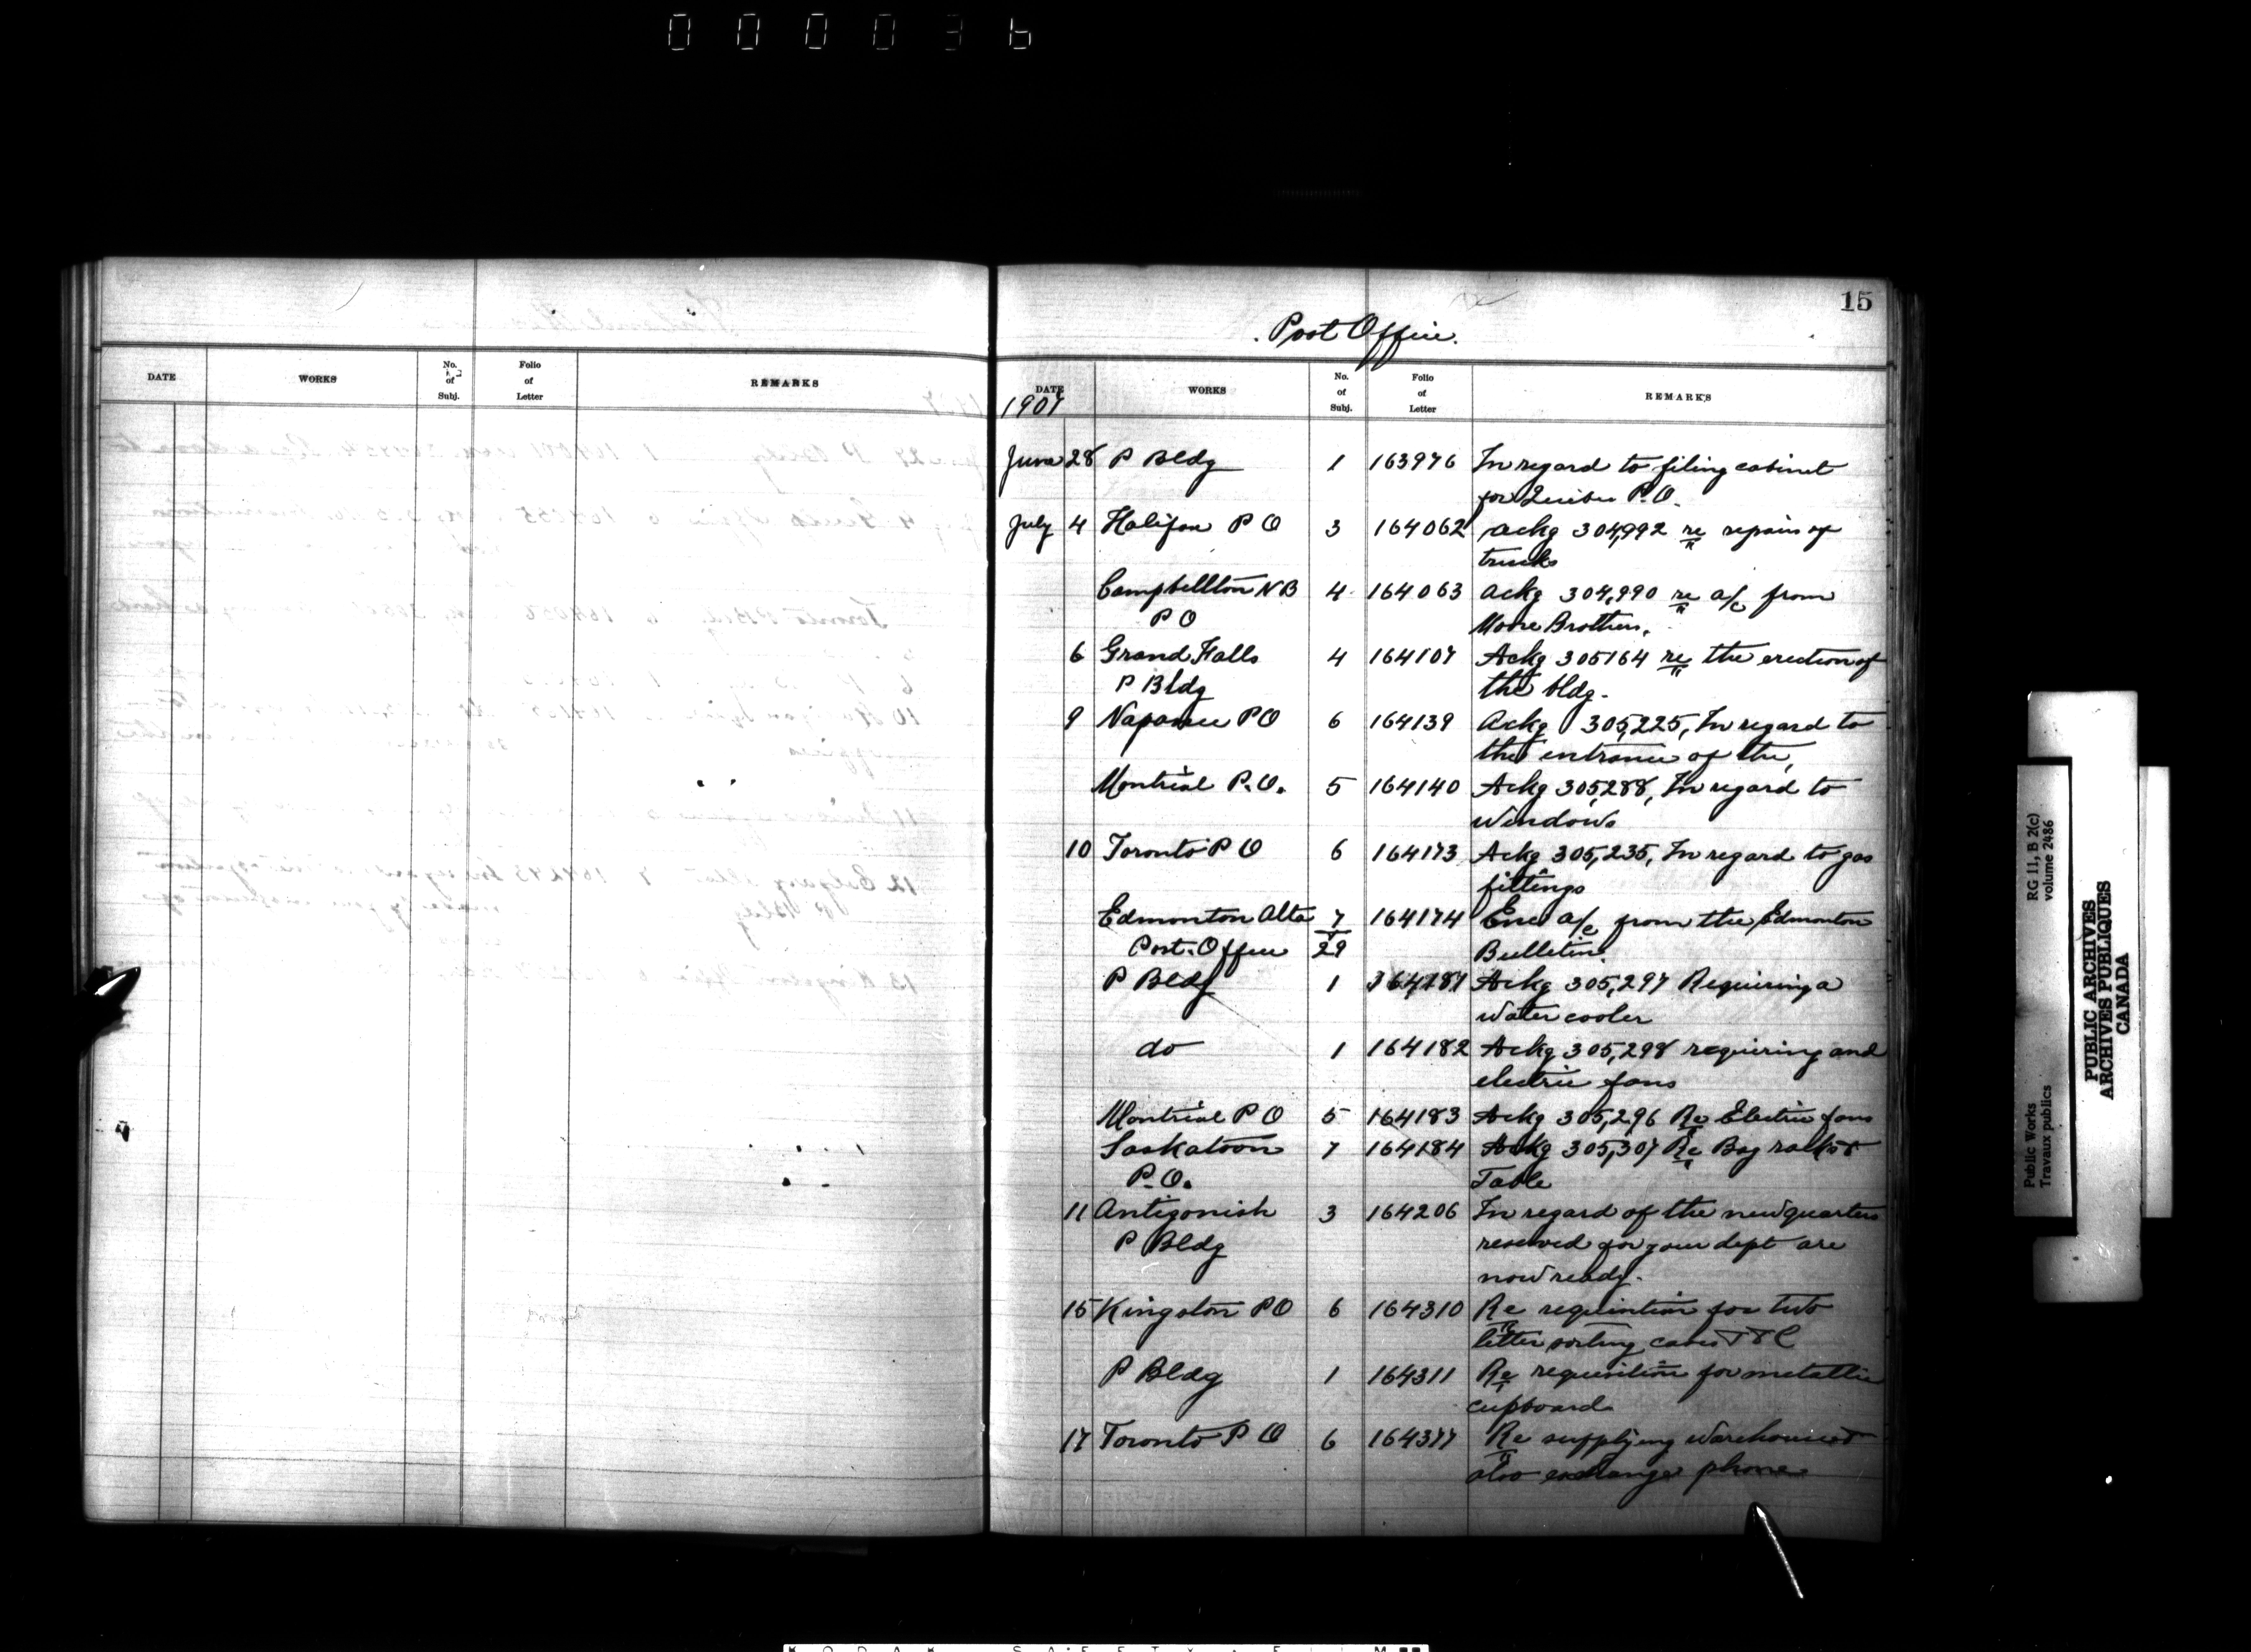 000036
15
Post Office.
DATE WORKS No. of Subj. Folio of Letter REMARKS
DATE WORKS No. of Subj. Folio of Letter REMARKS
1907
June 28 P Bldg 1 163976 In regard to filing cabinet
for Quebec P.O.
July 4 Halifax P O 3 164062 Ackg 304,992 re repairs of
trucks
Campbellton N B 4 164063 Ackg 304,990 re a/c from
P O Moore Brothers.
6 Grand Falls 4 164107 Ackg 305164 re the erection of
P Bldg the bldg.
9 Napanee P O 6 164139 Ackg 305,225, In regard to
the entrance of the,
Montreal P.O. 5 164140 Ackg 305,288, In regard to
windows
10 Toronto P O 6 164173 Ackg 305,235, In regard to gas
fittings
Edmonton Alta 7 164174 Enc a/c from the Edmonton
Post. Office 29 Bulletin.
P Bldg 1 164181 Ackg 305,297 Requiring a
water cooler
do 1 164182 Ackg 305,298 requiring and
electric fans
Montreal P O 5 164183 Ackg 305,296 Re Electric fans
Saskatoon 7 164184 Ackg 305,307 Re Bag racks &
P.O. Table
11 Antigonish 3 164206 In regard of the new quarters
P Bldg reserved for your dept are
now ready.
15 Kingston P O 6 164310 Re requisition for two
letter sorting cases
P Bldg 1 164311 Re requisition for metallic
cupboard
17 Toronto P O 6 164377 Re supplying
also exchange phone
Public Works RG 11, B 2(c)
Travaux publics volume 2486
PUBLIC ARCHIVES
ARCHIVES PUBLIQUES
CANADA
KODAK SAFETY FILM